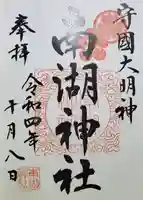 守國大明神
南湖神社
奉拝
令和四年
十月八日